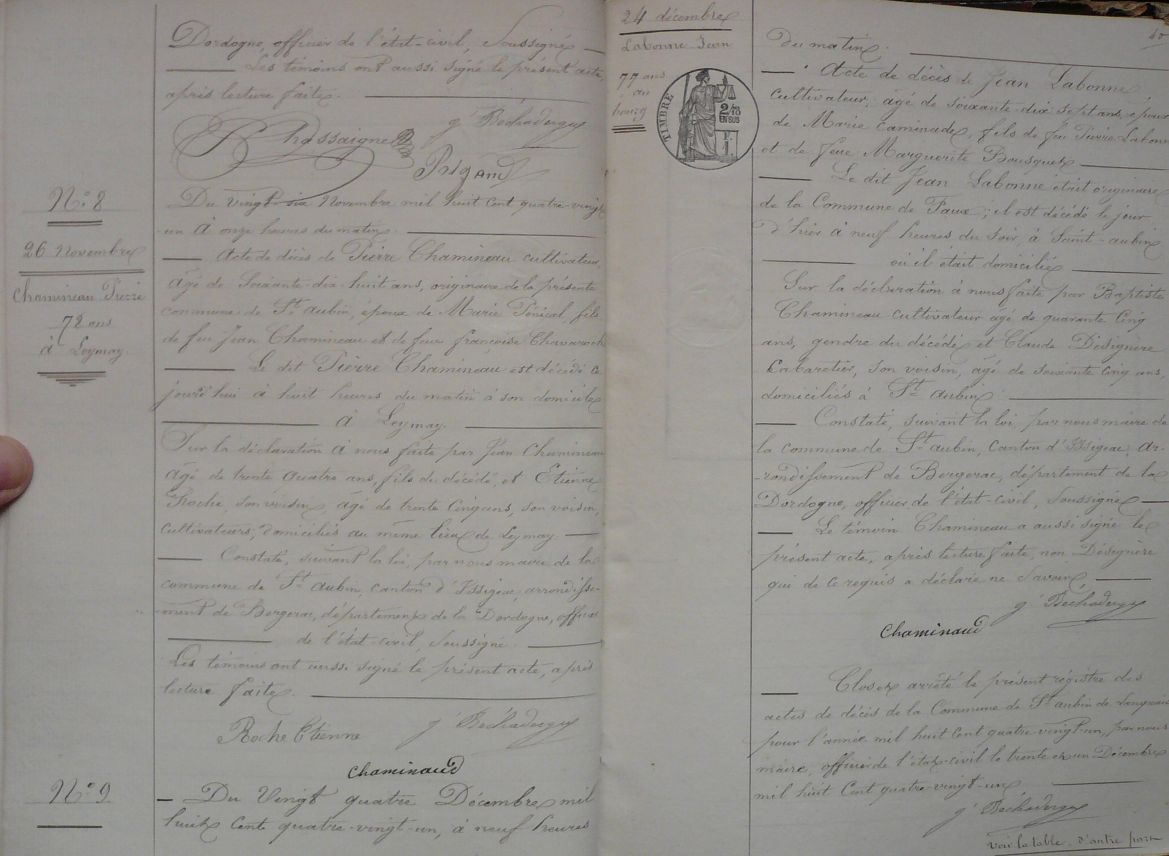 Dordogne, officier de l'état-civil, Soussigné
Les témoins ont aussi signé le présent acte,
après lecture faite.
Chassaigne
Du Vingt six Novembre mil huit cent quatre-vingt
N° 8
un à onze heures du matin.
26 Novembre
Chamineau Pierre
78 ans
à Leymay
Acte de décès de Pierre Chamineau cultivateur,
âgé de Soixante-dix-huit ans, originaire de la présente
commune de St aubin, époux de Marie fils
de feu Jean Chamineau et de feue françoise
Le dit Pierre Chamineau est décédé ce
jourd'hui à huit heures du matin à son domicile
à Leymay.
Sur la déclaration à nous faite par Jean Chamineau
âgé de trente quatre ans, fils du décédé, et Etienne
Roche, son voisin, âgé de trente cinq ans, son voisin,
cultivateurs, domiciliés au même lieu de Leymay
Constaté, suivant la loi, par nous maire de la
commune de St aubin, canton d'Issigeac, arrondisse-
ment de Bergerac, département de la Dordogne, officier
de l'état-civil, soussigné.
Les témoins ont aussi signé le présent acte, après
lecture faite.
Roche Etienne
Chaminaud
N° 9
Du Vingt quatre Décembre mil
huit cent quatre-vingt-un, à neuf heures
24 décembre
Labonne Jean
77 ans
au
bourg
TIMBRE
2/10
EN SUS
du matin.
Acte de décès de Jean Labonne
cultivateur, âgé de soixante-dix-sept ans, époux
de Marie Caminade, fils de feu Pierre Labonne
et de feue Marguerite Bousquet
Le dit Jean Labonne était originaire
de la Commune de Faux; il est décédé le jour
d'hier à neuf heures du soir, à Saint-aubin
où il était domicilié
Sur la déclaration à nous faite par Baptiste
Chamineau cultivateur âgé de quarante Cinq
ans, gendre du décédé et Claude Désignère
Cabaretier, son voisin, âgé de soixante cinq ans,
domiciliés à St aubin.
Constaté, suivant la loi, par nous maire de
la commune de St aubin, Canton d'Issigeac, ar-
-rondissement de Bergerac, département de la
Dordogne, officier de l'état-civil, Soussigné
Le témoin Chamineau a aussi signé le
présent acte, après lecture faite, non Désignère
qui de ce requis a déclaré ne Savoir.
Chaminaud
Clos et arrêté le présent registre des
actes de décès de la Commune de St aubin de
pour l'année mil huit Cent quatre-vingt-un, par nous
maire, officier de l'état-civil le trente et un Décembre
mil huit Cent quatre-vingt-un.
voir la table d'autre part